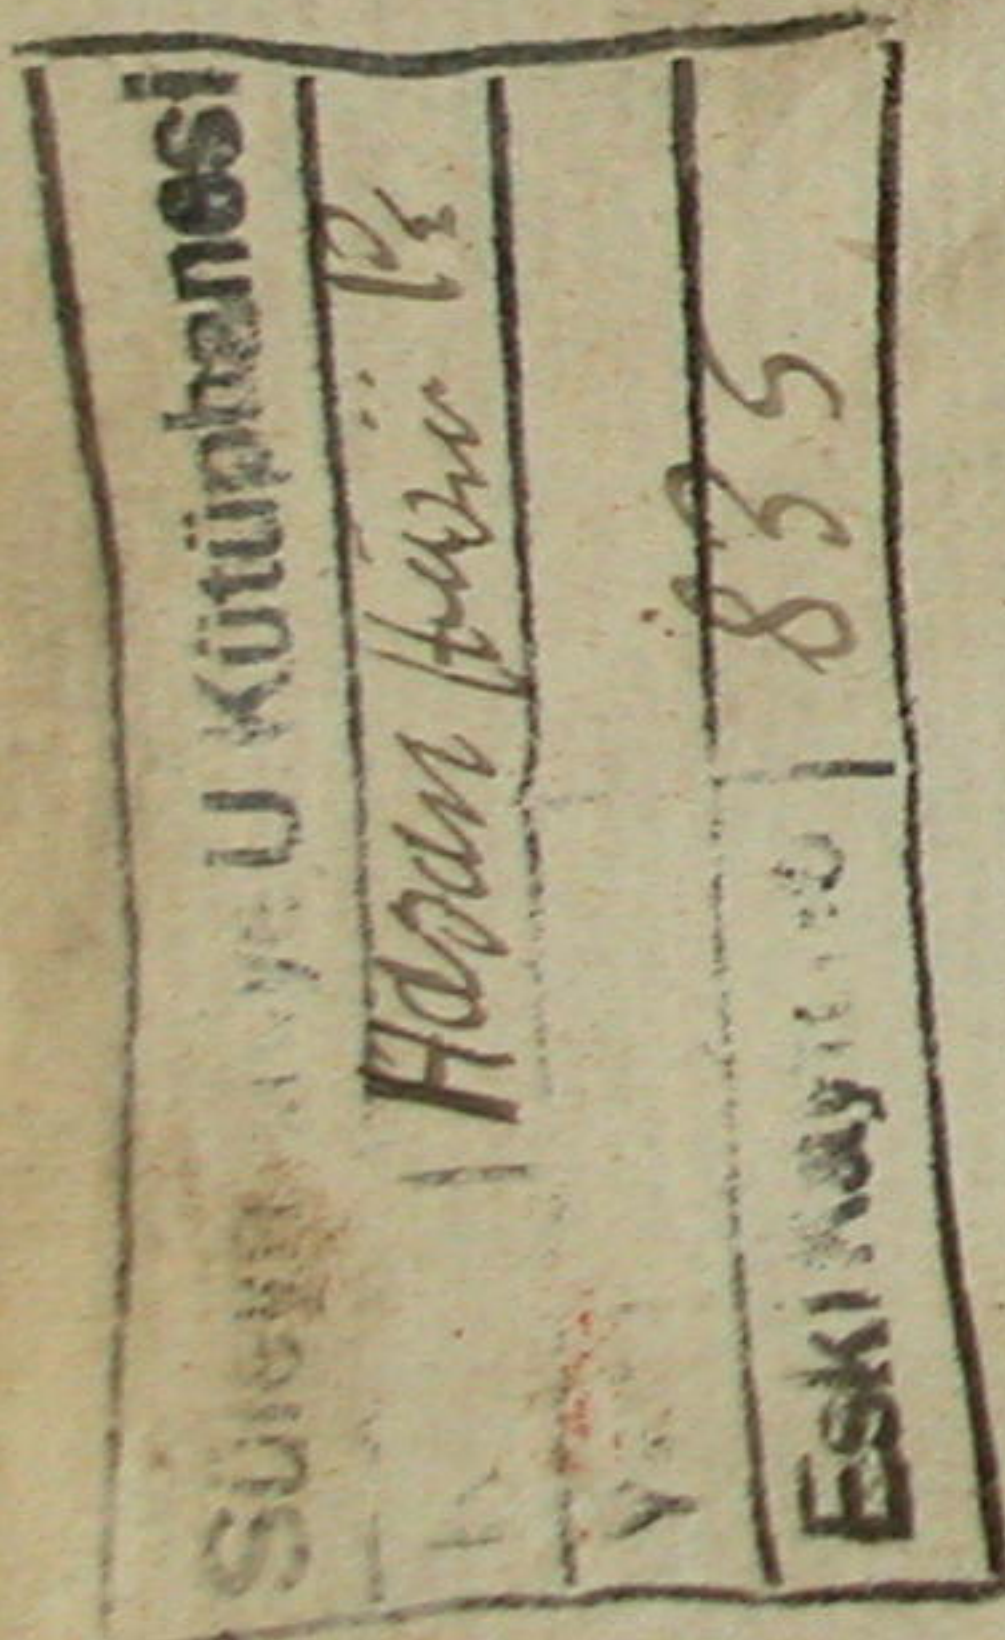 Süleymaniye U Kütüphanesi
Hasan Hüsnü Pş
Eski Kayıt No 835